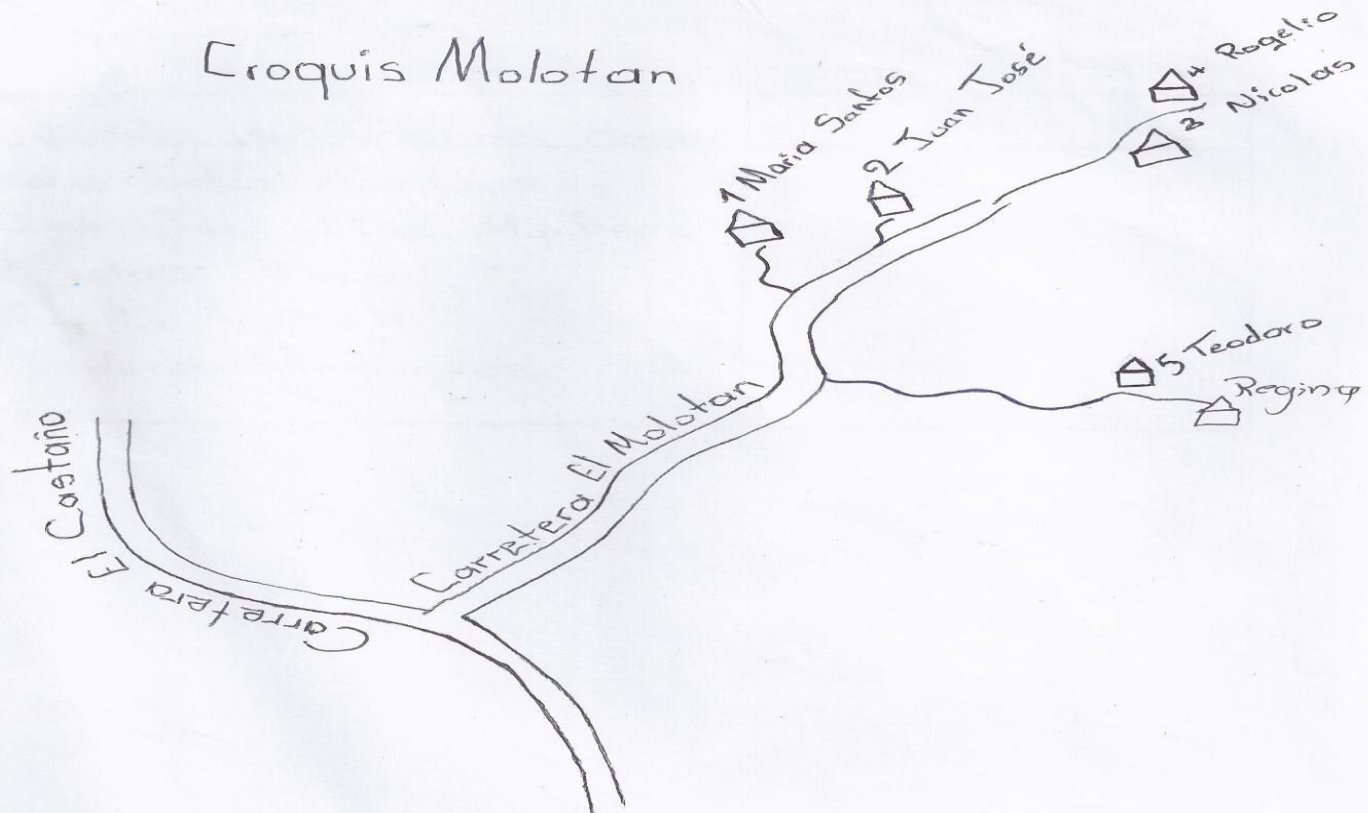 Croquis Molotan
1 Maria Santos
2 Juan José
4 Rogelio
3 Nicolas
5 Teodoro
Regina
Carretera El Molotan
Carretera El Castaño